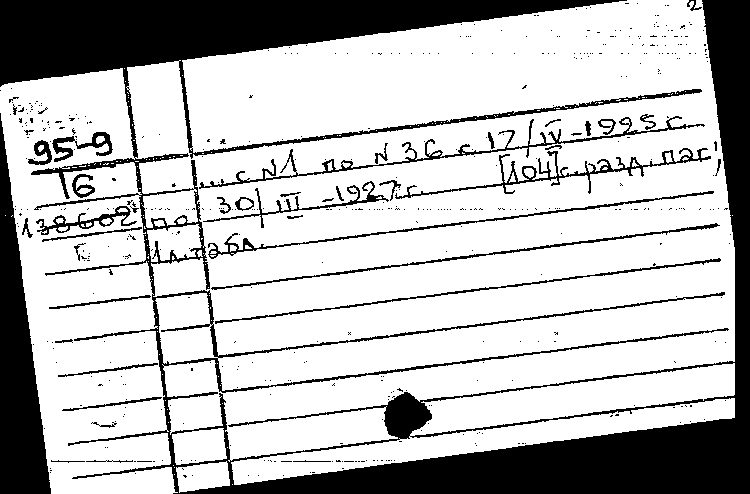 2
95-9
16
... с N1 по N 36 с 17/IV-1925 г.
138602 по 30/III-1927 г. [104] с. разд. паг;
Б 1 л. табл.